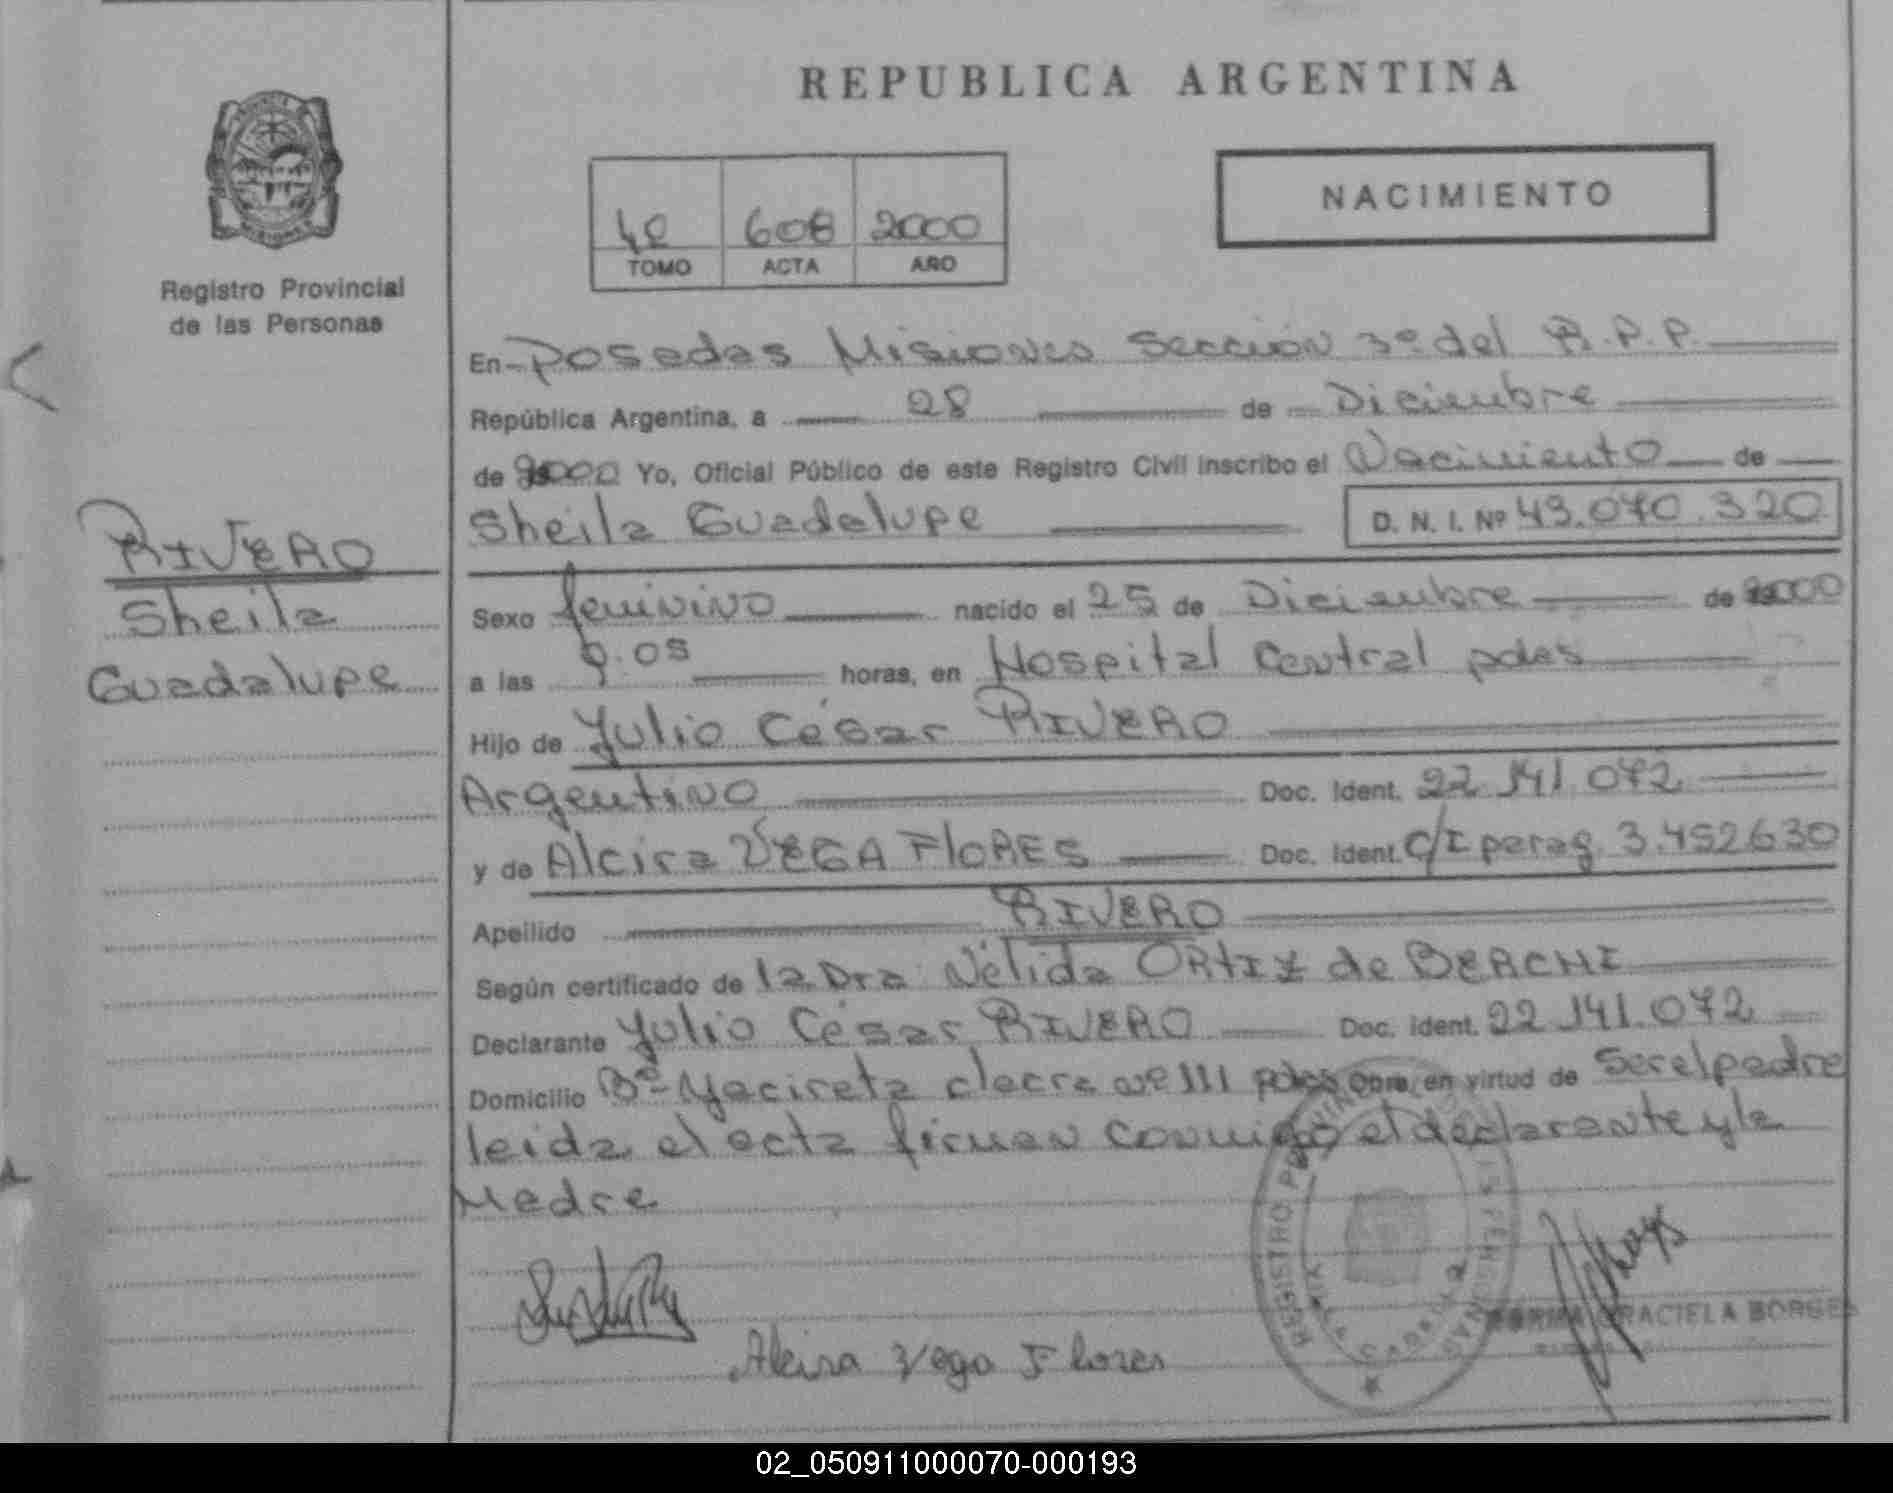 REPUBLICA ARGENTINA
NACIMIENTO
4º 608 2000
TOMO ACTA AÑO
Registro Provincial
de las Personas
En Posadas Misiones Sección 3º del R.P.P.
República Argentina, a 28 de Diciembre
de 2000 Yo, Oficial Público de este Registro Civil inscribo el Nacimiento de
Sheila Guadalupe D. N. I. Nº 43.070.320
RIVERO
Sheila
Guadalupe
Sexo femenino nacido el 25 de Diciembre de 2000
a las 9.05 horas, en Hospital Central pdas
Hijo de Julio César RIVERO
Argentino Doc. Ident. 22.141.072
y de Alcira VEGA FLORES Doc. Ident. C/I parag. 3.452630
Apellido RIVERO
Según certificado de la Dra Nélida ORTIZ de BERCHI
Declarante Julio César RIVERO Doc. ident. 22.141.072
Domicilio Bº Yacireta chacra Nº 111 pdas Obra en virtud de Ser el padre
leida el acta firman conmigo el declarante y la
Madre
Alcira Vega Flores
REGISTRO
VILLA CABELLO
NORMA GRACIELA BORGES
02_050911000070-000193